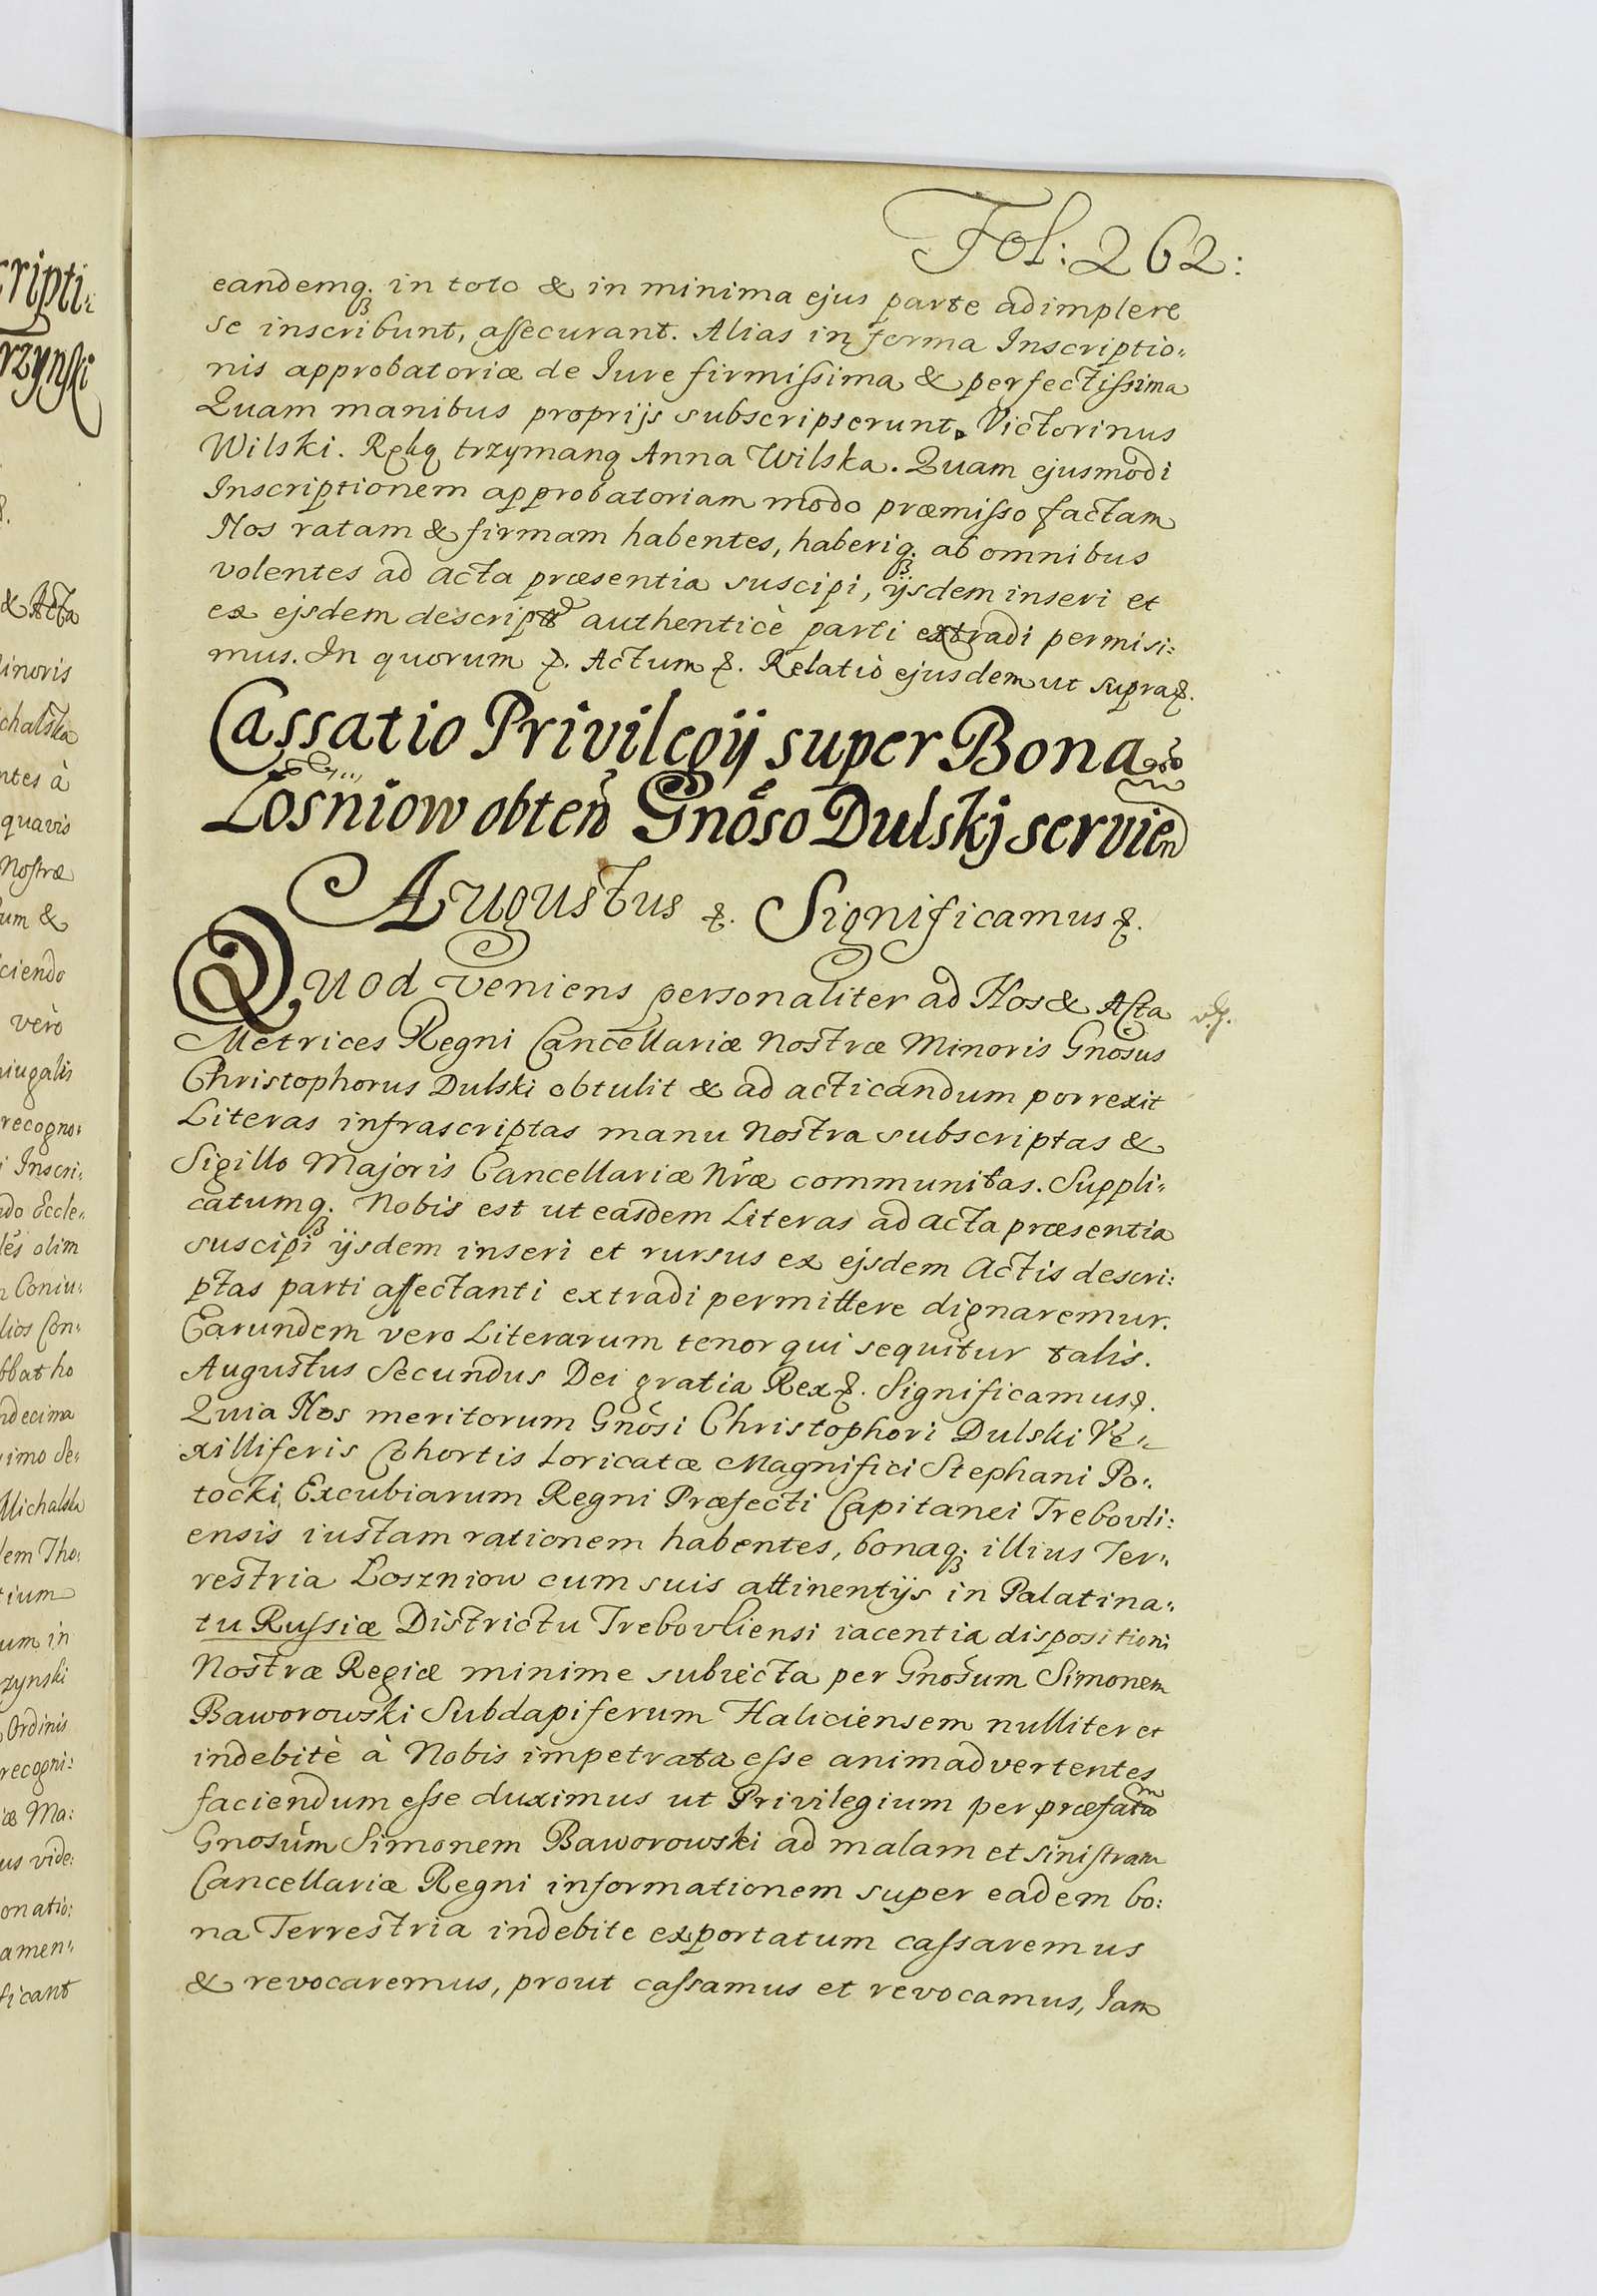 Fol: 262:
eandemq. in toto & in minima ejus parte adimplere
se inscribunt, assecurant. Alias in forma Inscriptio:
nis approbatoriæ de Iure firmissima & perfectissima
Quam manibus proprijs subscripserunt. Victorinus
Wilski. Ręką trzymaną Anna Wilska. Quam ejusmodi
Inscriptionem approbatoriam modo præmisso factam
Nos ratam & firmam habentes, haberiq. ab omnibus
volentes ad acta præsentia suscipi, ijsdem inseri et
ex ejsdem descript authenticè parti extradi permisi:
mus. In quorum &. Actum &. Relatio ejusdem ut supra &.
Cassatio Privilegij super Bona
Łosniow obten Gnoso Dulskj servien
Augustus &. Significamus &.
Quod veniens personaliter ad Nos & Acta
Metrices Regni Cancellariæ Nostræ Minoris Gnosus
Christophorus Dulski obtulit & ad acticandum porrexit
Literas infrascriptas manu Nostra subscriptas &
Sigillo Majoris Cancellariæ Nræ communitas. Suppli:
catumq. Nobis est ut easdem Literas ad acta præsentia
suscipi ijsdem inseri et rursus ex ejsdem Actis descri:
ptas parti affectanti extradi permittere dignaremur.
Earundem vero Literarum tenor qui sequitur talis.
Augustus Secundus Dei gratia Rex &. Significamus &.
Quia Nos meritorum Gnosi Christophori Dulski Ve:
xilliferis Cohortis Loricatæ Magnifici Stephani Po:
tocki Excubiarum Regni Præfecti Capitanei Trebovli:
ensis iustam rationem habentes, bonaq. illius Ter:
restria Loszniow cum suis attinentijs in Palatina:
tu Russiæ Districtu Trebovliensi iacentia dispositioni
Nostræ Regiæ minime subiecta per Gnosum Simonem
Baworowski Subdapiferum Haliciensem nulliter et
indebitè à Nobis impetrata esse animadvertentes
faciendum esse duximus ut Privilegium per præfatum
Gnosum Simonem Baworowski ad malam et sinistram
Cancellariæ Regni informationem super eadem bo:
na Terrestria indebite exportatum cassaremus
& revocaremus, prout cassamus et revocamus, Iam